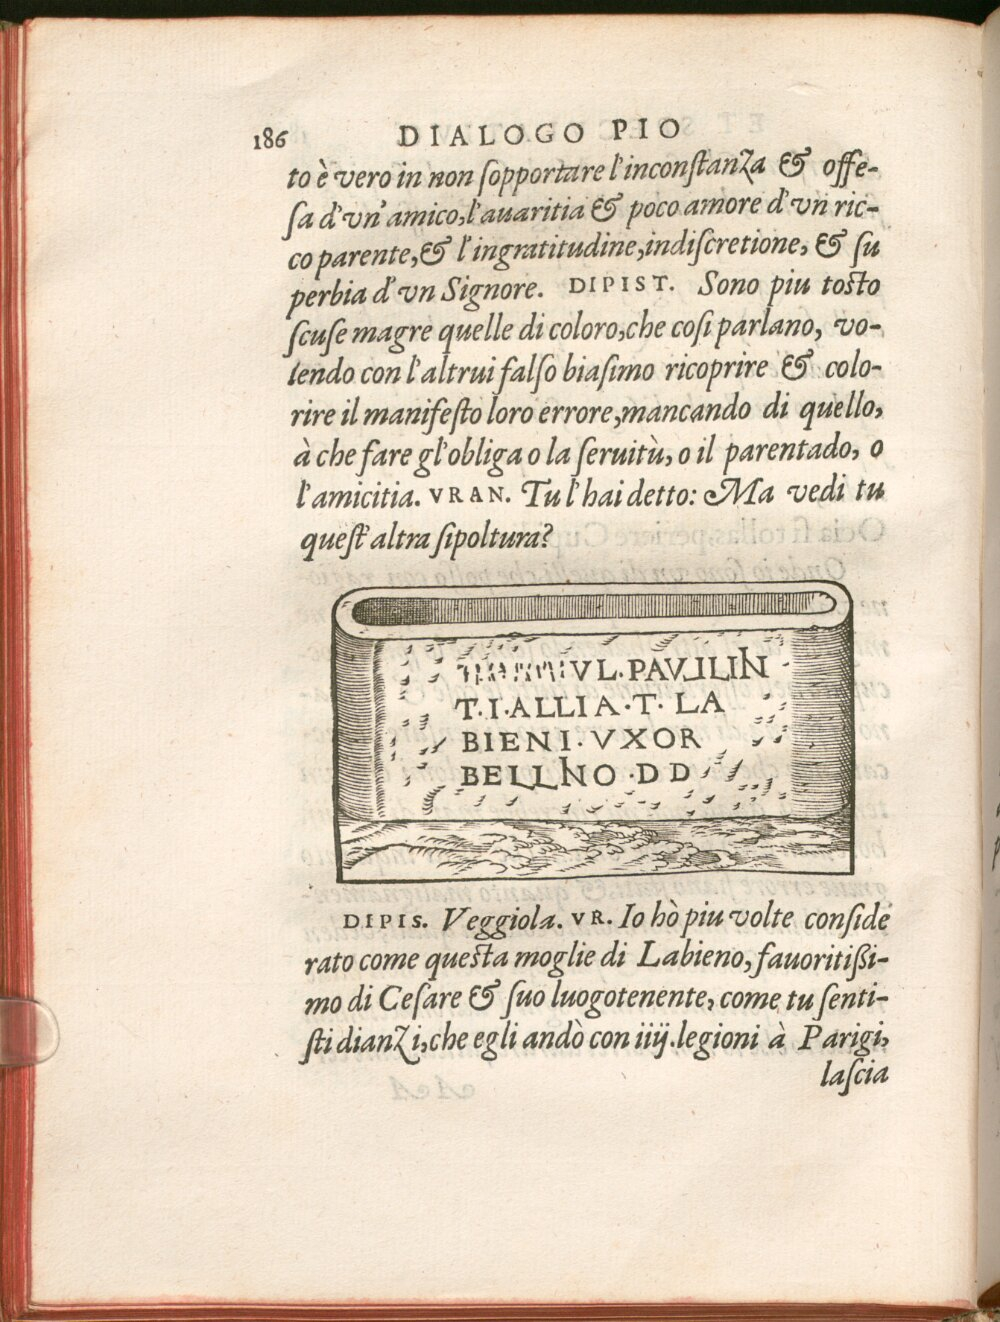 186 DIALOGO PIO
to è vero in non ſopportare l'inconſtanza & offe-
ſa d'vn' amico, l'auaritia & poco amore d'vn ric-
co parente, & l'ingratitudine, indiſcretione, & ſu
perbia d'vn Signore. DIPIST. Sono piu toſto
ſcuſe magre quelle di coloro, che coſi parlano, vo-
lendo con l'altrui falſo biaſimo ricoprire & colo-
rire il manifeſto loro errore, mancando di quello,
à che fare gl'obliga o la ſeruitù, o il parentado, o
l'amicitia. VRAN. Tu l'hai detto: Ma vedi tu
queſt' altra ſipoltura?
VL. PAVLLIN
T. I. ALLIA. T. LA
BIENI. VXOR
BELLINO. D D
DIPIS. Veggiola. VR. Io hò piu volte conſide
rato come queſta moglie di Labieno, fauoritiſsi-
mo di Ceſare & ſuo luogotenente, come tu ſenti-
ſti dianzi, che egli andò con iiij. legioni à Parigi,
laſcia